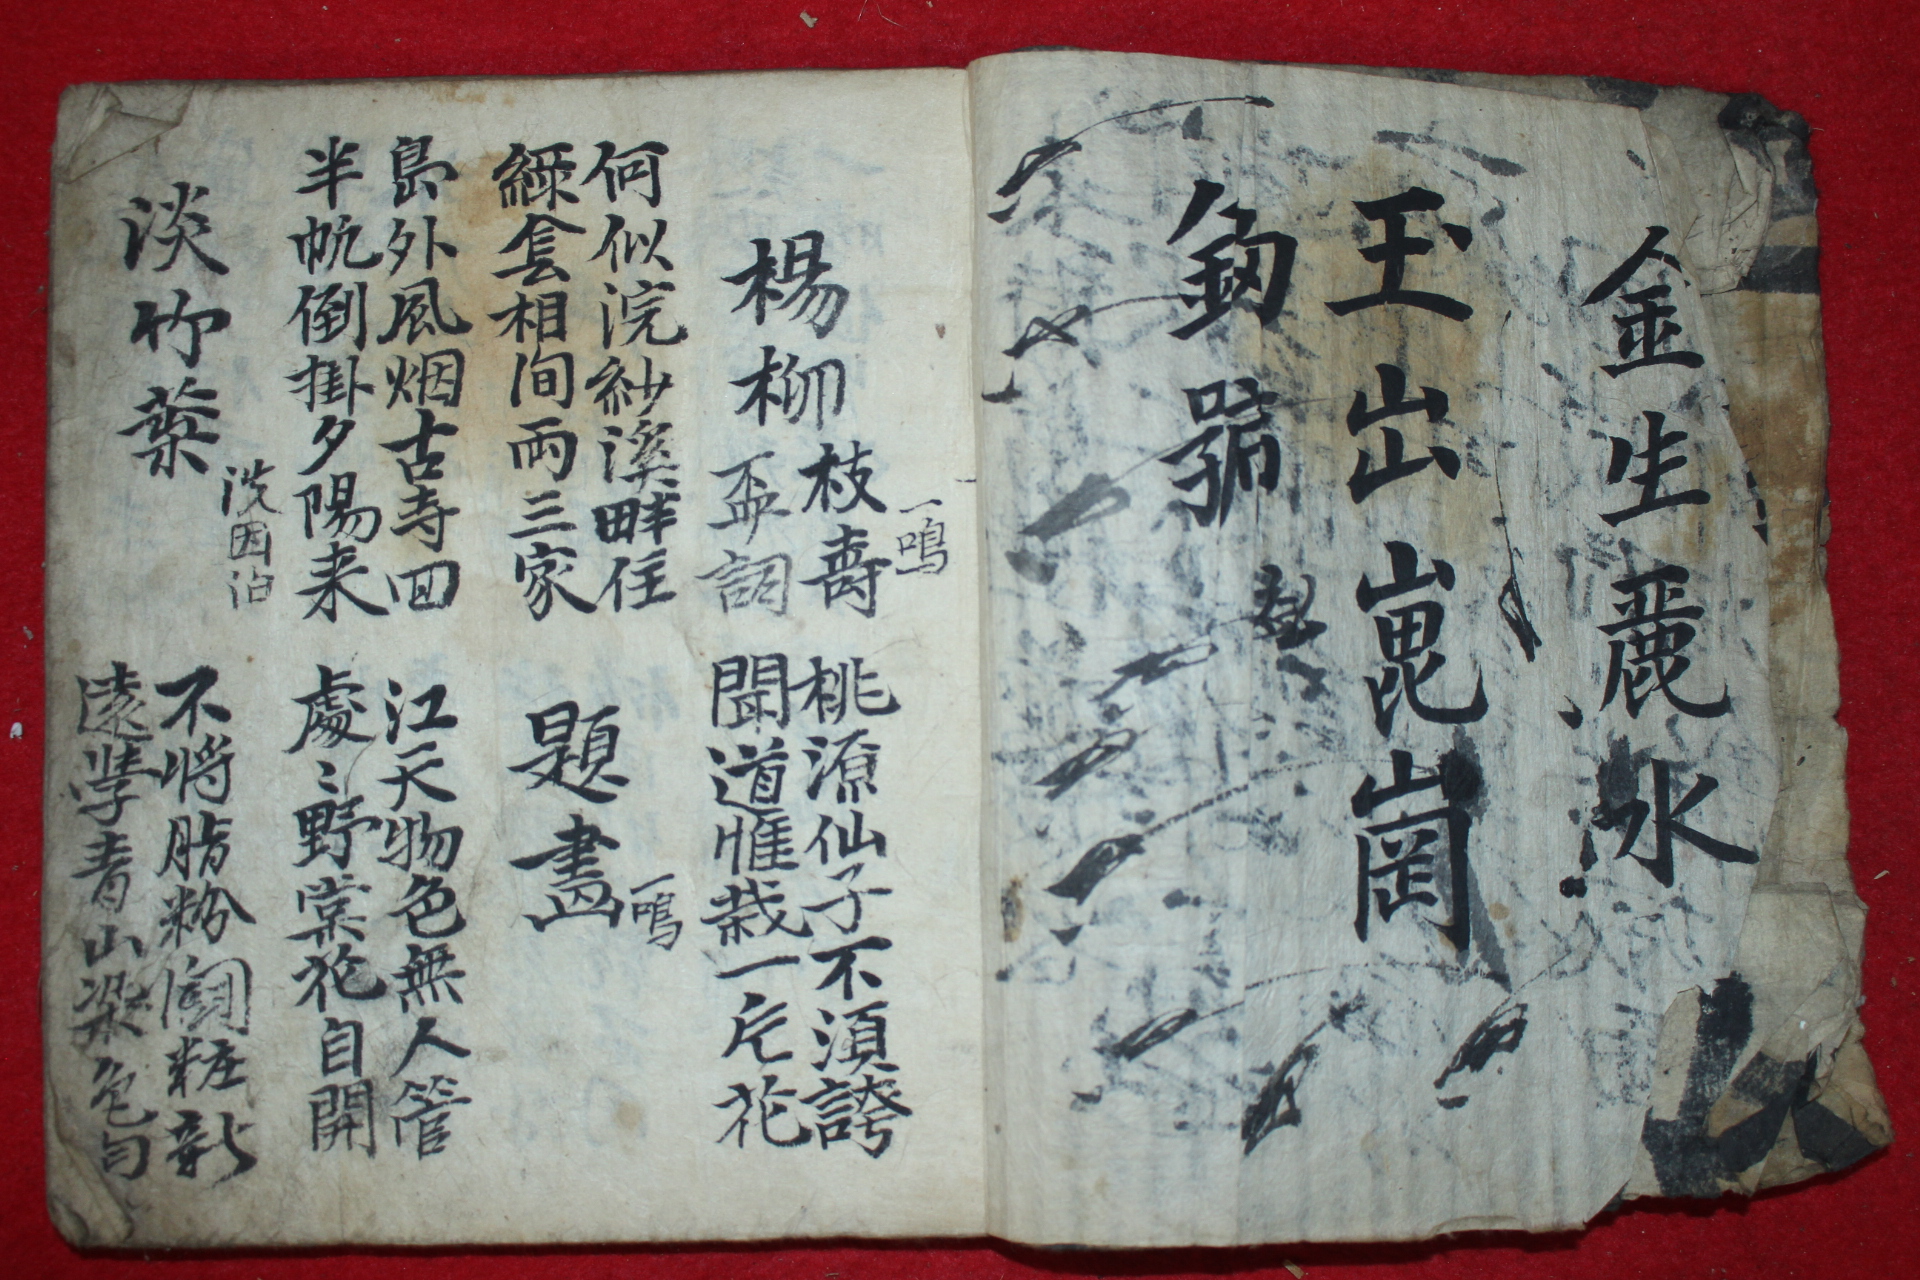 金生麗水
玉山崑崗
釼號
楊柳枝壽
盃詞
一鳴
桃源仙子不須誇
聞道惟栽一片花
何似浣紗溪畔住
綠陰相間兩三家
題畫
一鳴
島外風烟古寺回
半帆倒掛夕陽来
江天物色無人管
處〻野棠花自開
淡竹葉
洗因泊
不將脂粉鬪粧新
遠學青山染色勻